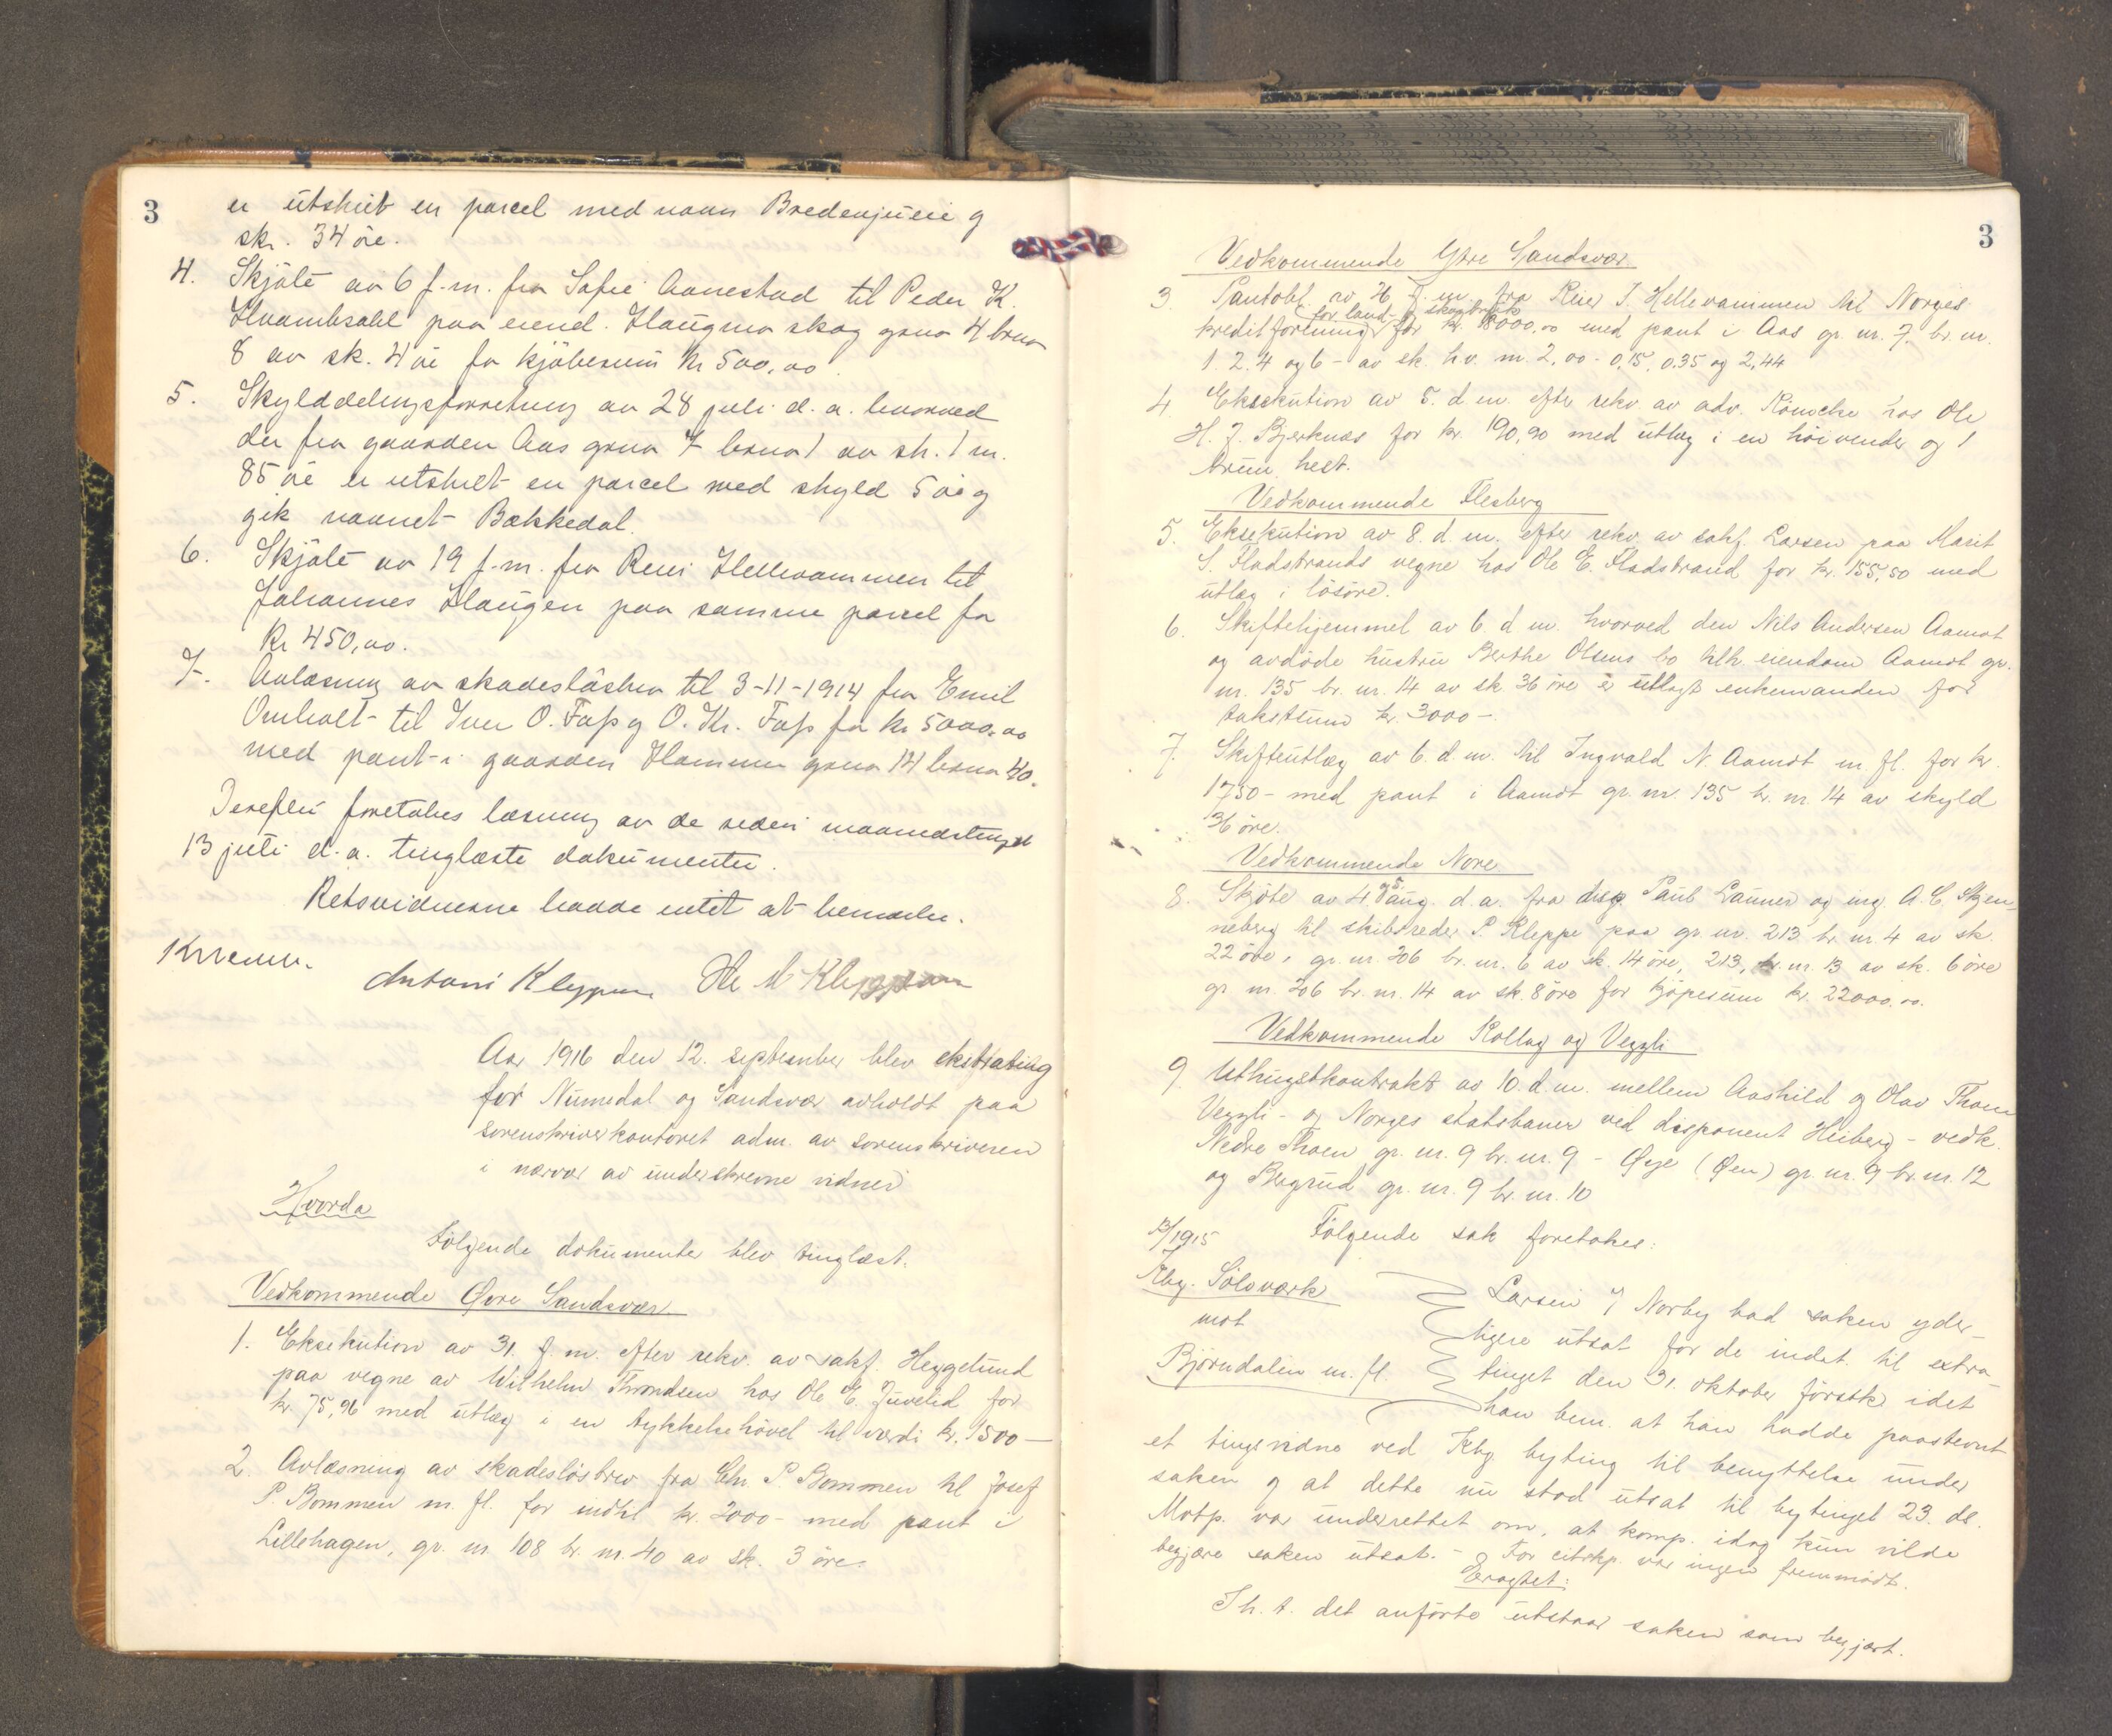 3
er utskilt en parcel med navn Bredenjueie og
sk. 34 øre.
4. Skjøte av 6 f.m. fra Sofie Aanestad til Peder K.
paa eiend. Haugmo skog grno 4 brno
8 av sk. 4 øre for kjøbesum kr 500,00.
5. Skylddelingsforretning av 28 juli d.a. hvorved
der fra gaarden Aas grno 7 brno 1 av sk. 1 m.
85 øre er utskilt en parcel med skyld 5 øre og
gik navnet Bækkedal.
6. Skjøte av 19 f.m. fra Reier Hellevammen til
Johannes Haugen paa samme parcel for
Kr 450,00.
7. Avlæsning av skadesløsbrev til 3-11-1914 fra Emil
Omholt til Iver O. Fass og O. Kr. Fass for kr 5000.00
med pant i gaarden Hammer grno 14 brno 40.
Derefter foretokes læsning av de siden maanedstinget
13 juli d.a. tinglæste dokumenter.
Retsvidnerne hadde intet at bemerke.
Antoni Kleppen Ole M Kleppen
Aar 1916 den 12. september blev ekstrating
for Numedal og Sandsvær avholdt paa
sorenskriverkontoret adm. av sorenskriveren
i nærvær av underskrevne vidner
Hvorda
Følgende dokumenter blev tinglæst.
Vedkommende Øvre Sandsvær
1. Eksekution av 31. f.m. efter rekv. av sakf. Heggelund
paa vegne av Wilhelm Throndsen hos Ole E. Juvelid for
kr. 75,96 med utlæg i en tykkelsehøvel til værdi kr. 1500—
2. Avlæsning av skadesløsbrev fra Chr P. Bommen til Josef
P. Bommen m. fl. for indtil kr. 2000- med pant i
Lillehagen, gr. nr. 108 br. nr. 40 av sk. 3 øre.
3
Vedkommende Ytre Sandsvær
3. Pantobl. av 26 f. m. fra Reier J. Hellevammen til Norges
for land- og skogbruk
kreditforening for kr 18000.00 med pant i Aas gr. nr. 7. br. nr.
1. 2. 4 og 6 - av sk. hv. m. 2,00 - 0,15, 0,35 og 2,44
4. Eksekution av 5. d.m. efter rekv. av adv. Römcke hos Ole
H. J. Bjerknæs for kr. 190,90 med utlæg i en høivender og 1
brun hest.
Vedkommende Flesberg
5. Eksekution av 8. d.m. efter rekv. av sakf. Larsen paa Marit
S. Fladstrands vegne hos Ole E. Fladstrand for kr. 155,50 med
utlæg i løsøre.
6. Skiftehjemmel av 6. d m. hvorved den Nils Andersen Aamot
og avdøde hustru Berthe Olsens bo tilh. eiendom Aamot gr.
nr. 135 br. nr. 14 av sk 36 øre er utlagt enkemanden for
takstsum kr. 3000-.
7. Skifteutlæg av 6. d.m. til Ingvald N. Aamot m. fl. for kr.
1750- med pant i Aamot gr. nr. 135 br. nr 14 av skyld
36 øre.
Vedkommende Nore.
8. Skjøte av 4 og 5. aug. d.a. fra disp. Paul Launer og ing. A. C. Skjen-
neberg til skibsreder P. Kleppe paa gr. nr. 213 br. nr. 4 av sk.
22 øre, gr. nr. 206 br. nr. 6 av sk. 14 øre, 213, br. nr. 13 av sk. 6 øre
gr nr. 206 br. nr. 14 av sk. 8 øre for kjøpesum kr. 22000.00.
Vedkommende Rollag og Veggli
9. Uthugstkontrakt av 10. d.m. mellem Aashild og Olav Thoen
Veggli - og Norges statsbaner ved disponent Heiberg - vedk.
Nedre Thoen gr. nr. 9 br. nr. 9 - Øye (Øen) gr. nr. 9 br. nr. 12
og Bergrud gr. nr. 9 br. nr. 10
Følgende sak foretokes:
13/1915
Kbg. Sølvværk
mot
Bjørndalen m. fl.
Larsen f Norby bad saken yder-
ligere utsat for de indst. til extra-
tinget den 31. oktober førstk. idet
han bem. at han hadde paastevnt
et tingsvidne ved Kbg byting til benyttelse under
saken og at dette nu stod utsat til bytinget 23. ds.
Motp. var underrettet om, at komp. idag kun vilde
begjære saken utsat. - For citatp. var ingen fremmødt.
Eragtet:
Ih. t. det anførte utstaar saken som begjært.